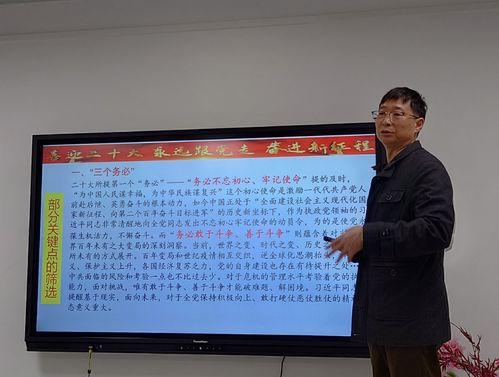 喜迎二十大 永远跟党走 奋进新征程
一、“三个务必”
二十大所提第一个“务必”——“务必不忘初心、牢记使命”提的及时，
“为中国人民谋幸福，为中华民族谋复兴”这个初心使命是激励一代代共产党人
前赴后继、英勇奋斗的根本动力，如今中国正处于“全面建设社会主义现代化国
家新征程、向第二个百年奋斗目标进军”的历史新坐标下，作为执政党领袖的习
近平同志非常清醒地向全党同志发出不忘初心牢记使命的动员令，为的是使党永
葆生机活力，不懈奋斗。而“务必敢于斗争、善于斗争”则蕴含着对
界百年未有之大变局的深刻洞察。当前，世界之变、时代之变、历史
所未有的方式展开。百年变局和世纪疫情相互交织，逆全球化思潮抬
义、保护主义上升，各国经济复苏乏力，党的自身建设也存在有待提升之处
中共面临的风险和考验一点也不比过去少。对于危机的管理水平考验着党的执
能力，面对挑战，唯有敢于斗争、善于斗争才能破难题、解困境。习近平同志
提醒基于现实，面向未来，对于全党保持积极向上、敢打硬仗恶仗胜仗的精
态意义重大。
部分关键点的筛选